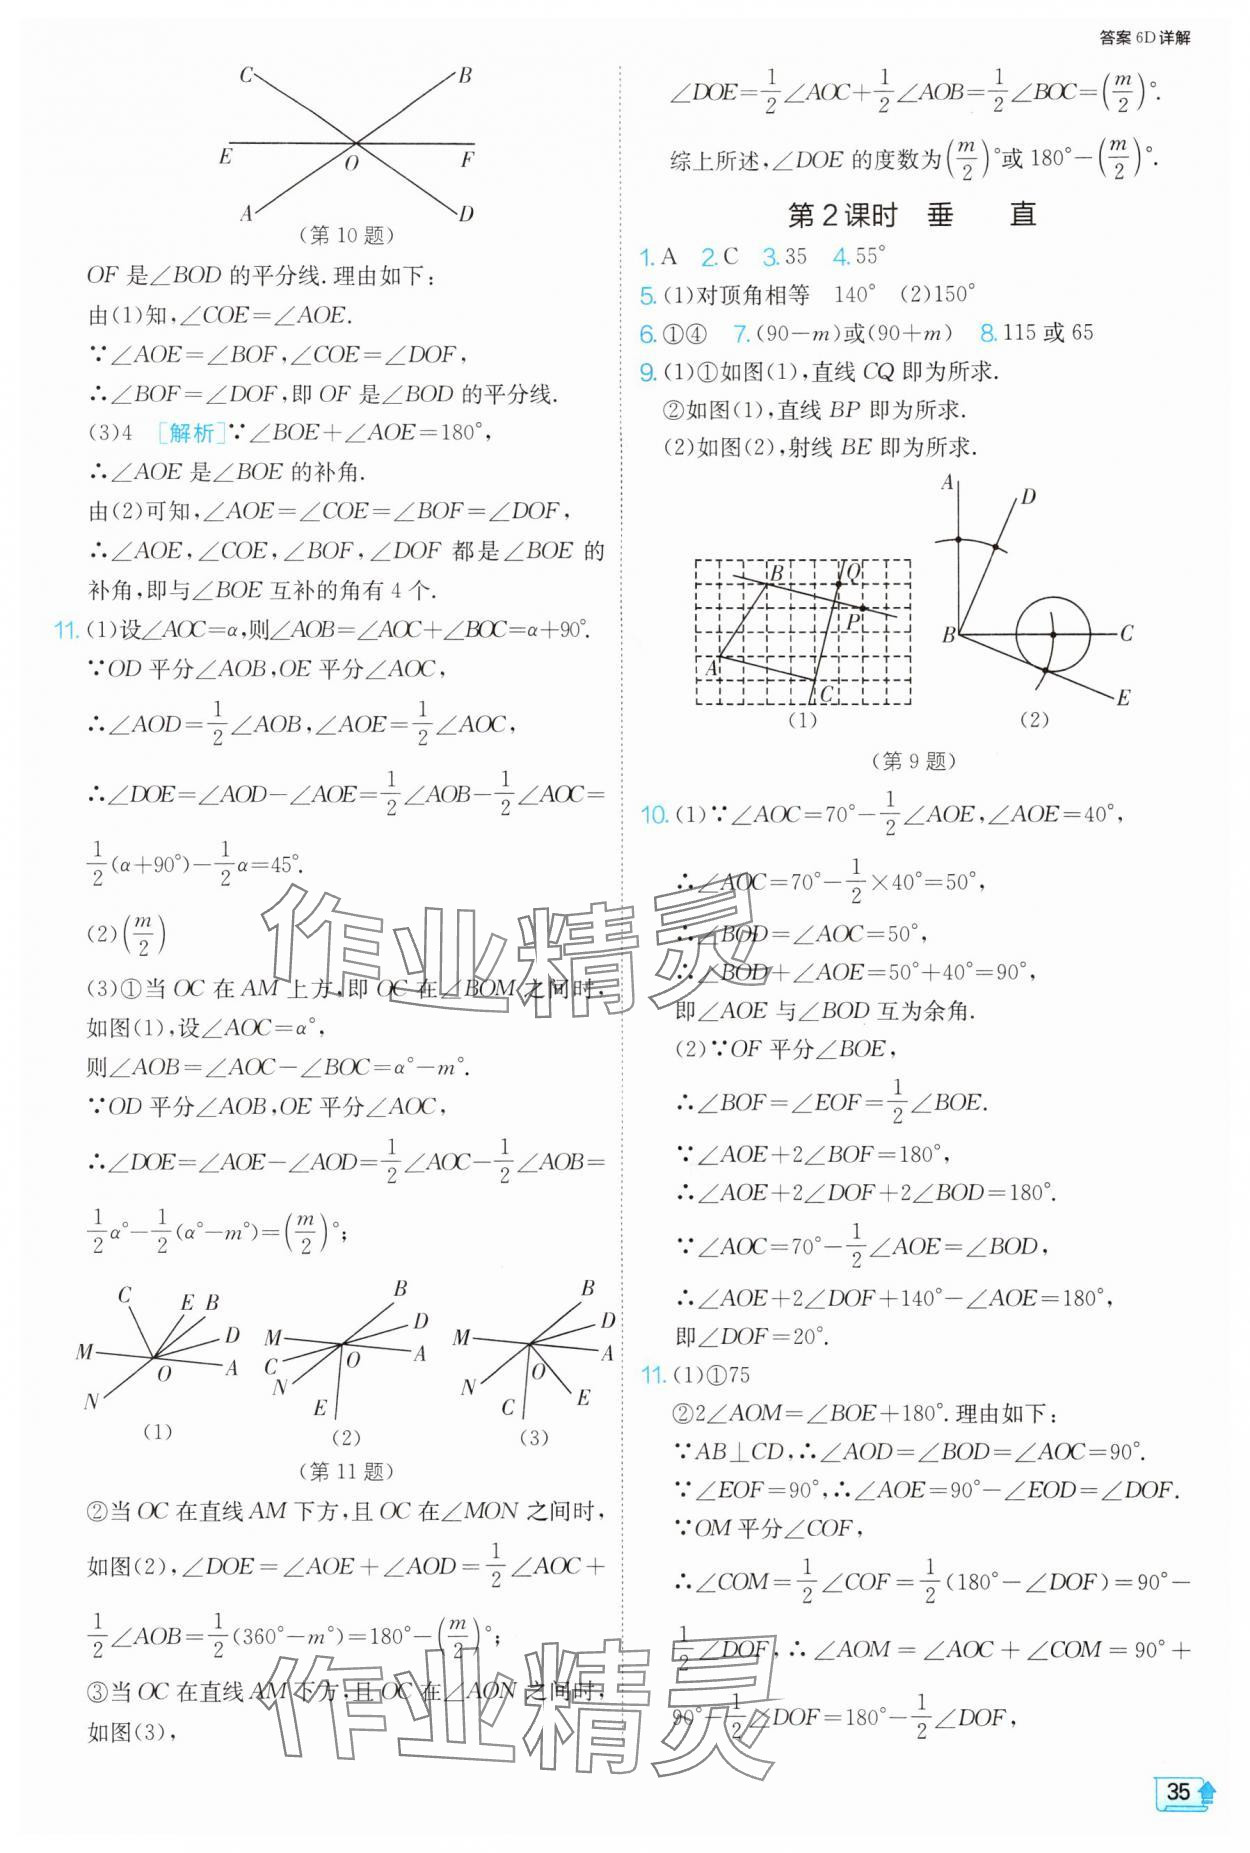 答案 6D 详解
C
B
E
O
F
A
D
(第 10 题)
OF 是∠BOD 的平分线.理由如下:
由(1)知,∠COE=∠AOE.
∵∠AOE=∠BOF,∠COE=∠DOF,
∴∠BOF=∠DOF,即 OF 是∠BOD 的平分线.
(3)4 [解析]∵∠BOE+∠AOE=180°,
∴∠AOE 是∠BOE 的补角.
由(2)可知,∠AOE=∠COE=∠BOF=∠DOF,
∴∠AOE,∠COE,∠BOF,∠DOF 都是∠BOE 的
补角,即与∠BOE 互补的角有 4 个.
11. (1)设∠AOC=α,则∠AOB=∠AOC+∠BOC=α+90°.
∵OD 平分∠AOB,OE 平分∠AOC,
∴∠AOD=1/2∠AOB,∠AOE=1/2∠AOC,
∴∠DOE=∠AOD-∠AOE=1/2∠AOB-1/2∠AOC=
1/2(α+90°)-1/2α=45°.
(2)(m/2)
(3)①当 OC 在 AM 上方,即 OC 在∠BOM 之间时,
如图(1),设∠AOC=α°,
则∠AOB=∠AOC-∠BOC=α°-m°.
∵OD 平分∠AOB,OE 平分∠AOC,
∴∠DOE=∠AOE-∠AOD=1/2∠AOC-1/2∠AOB=
1/2α°-1/2(α°-m°)=(m/2)°;
C E B D M O A N
(1)
B D M O A C N E
(2)
B D M O A N C E
(3)
(第 11 题)
②当 OC 在直线 AM 下方,且 OC 在∠MON 之间时,
如图(2),∠DOE=∠AOE+∠AOD=1/2∠AOC+
1/2∠AOB=1/2(360°-m°)=180°-(m/2)°;
③当 OC 在直线 AM 下方,且 OC 在∠AON 之间时,
如图(3),
∠DOE=1/2∠AOC+1/2∠AOB=1/2∠BOC=(m/2)°.
综上所述,∠DOE 的度数为(m/2)°或 180°-(m/2)°.
第 2 课时 垂 直
1. A 2. C 3. 35 4. 55°
5. (1)对顶角相等 140° (2)150°
6. ①④ 7. (90-m)或(90+m) 8. 115 或 65
9. (1)①如图(1),直线 CQ 即为所求.
②如图(1),直线 BP 即为所求.
(2)如图(2),射线 BE 即为所求.
B Q P A C
(1)
A D B C E
(2)
(第 9 题)
10. (1)∵∠AOC=70°-1/2∠AOE,∠AOE=40°,
∴∠AOC=70°-1/2×40°=50°,
∴∠BOD=∠AOC=50°,
∴∠BOD+∠AOE=50°+40°=90°,
即∠AOE 与∠BOD 互为余角.
(2)∵OF 平分∠BOE,
∴∠BOF=∠EOF=1/2∠BOE.
∵∠AOE+2∠BOF=180°,
∴∠AOE+2∠DOF+2∠BOD=180°.
∵∠AOC=70°-1/2∠AOE=∠BOD,
∴∠AOE+2∠DOF+140°-∠AOE=180°,
即∠DOF=20°.
11. (1)①75
②2∠AOM=∠BOE+180°.理由如下:
∵AB⊥CD,∴∠AOD=∠BOD=∠AOC=90°.
∵∠EOF=90°,∴∠AOE=90°-∠EOD=∠DOF.
∵OM 平分∠COF,
∴∠COM=1/2∠COF=1/2(180°-∠DOF)=90°-
1/2∠DOF,∴∠AOM=∠AOC+∠COM=90°+
90°-1/2∠DOF=180°-1/2∠DOF,
作业精灵
作业精灵
35